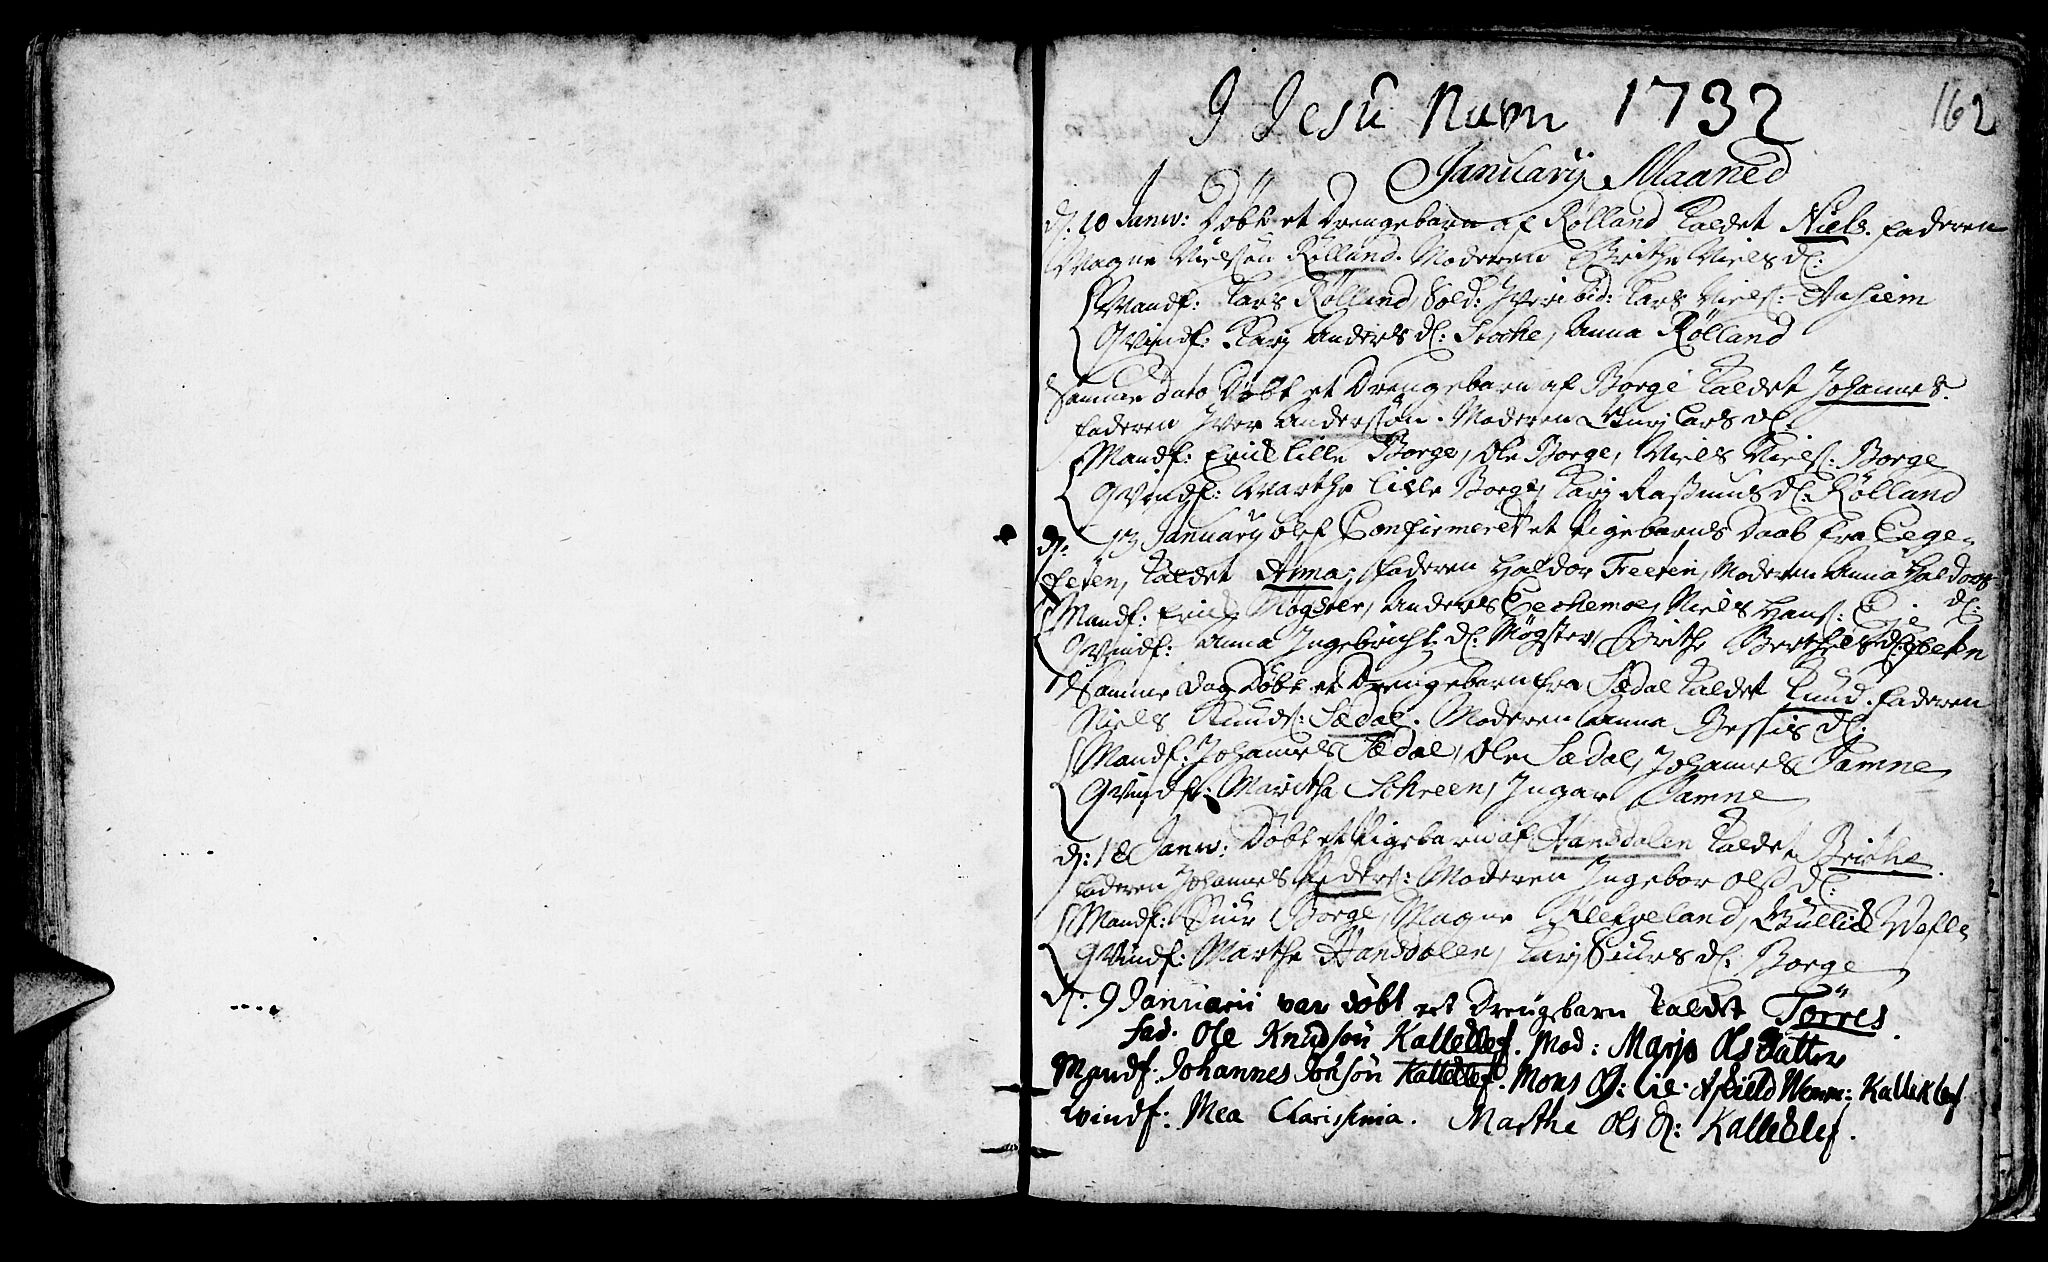 I Jesu Navn 1732
162
January Maaned
d. 10 Janu: Döbt et Drengebarn af Rölland kaldet Niels. Faderen
Magne Nielsön Rölland. Moderen Brithe Niels d:
Mandf: Lars Rölland, Sold: Iver ibid: Lars Niels: Aasiem
Qvindf: Karj Anders d: Stoche, Anna Rölland
Samme dato Döbt et Drengebarn af Borge kaldet Johannes.
Faderen Iver Andersön. Moderen Gurj Lars d:
Mandf: Erick Lille Borge, Ole Borge, Niels Niels: Borge
Qvindf: Marthe Lille Borge, Karj Rasmus d: Rölland
d: 13 January blef Confirmeret et Pigebarns Daab fra Lege-
feten, kaldet Anna; Faderen Haldor Treeten, Moderen Anna Haldors
d:
Mandf: Erick Mögster, Anders Hans:
Qvindf: Anna Ingebricht d: Mögster, Brithe Berthels d:
Samme dag Döbt et Drengebarn fra Sædal kaldet Knud. Faderen
Niels Knuds: Sædal. Moderen Anna d:
Mandf: Johannes Sædal, Ole Sædal, Johannes Tamne
Qvindf: Maritha Schreen, Ingar Tamne
d: 18 Janu: Döbt et Pigebarn af Hansdalen kaldet Brithe.
Faderen Johannes Peders: Moderen Ingebor Ols d:
Mandf: Siur Borge, Magne Klefveland, Gullick
Qvindf: Marthe Hansdalen, Karj Siurs d: Borge
d: 9 Januarii var döbt eet Drengebarn kaldet Törres.
Fad. Ole Knudsön Kalleklef. Mod: Marjo Ols Datter
Mandf. Johannes Johsön Kalleklef. Mons Ol: Lie. Kalleklef
Qvindf: Mea Charissima. Marthe Ols d: Kalleklef.